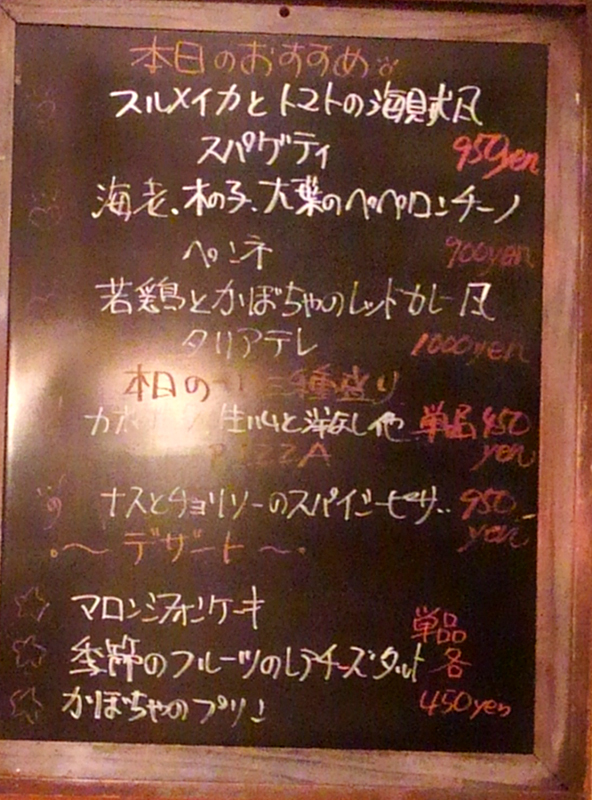 本日のおすすめ
スルメイカとトマトの海賊風
スパゲティ 950yen
海老、木の子、大葉のペペロンチーノ
ペンネ 900yen
若鶏とかぼちゃのレッドカレー風
タリアテレ 1000yen
本日の 三種盛り
生ハムと洋なし他 単品450
PIZZA yen
ナスとチョリソーのスパイシーピザ 950
yen
〜デザート〜
マロンシフォンケーキ
単品
季節のフルーツのレアチーズタルト 各
かぼちゃのプリン 450yen